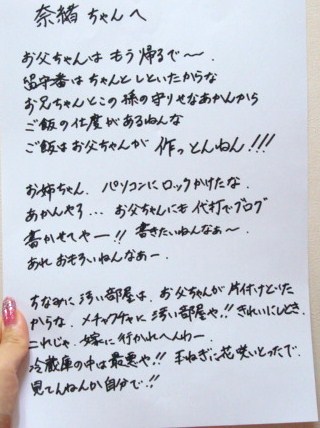 奈緒ちゃんへ
お父ちゃんは もう帰るで〜.
留守番はちゃんとしといたからな
お兄ちゃんとこの孫の守りせなあかんから
ご飯の仕度があるねんな
ご飯はお父ちゃんが 作っとんねん!!!
お姉ちゃん. パソコンにロックかけたな.
あかんやろ... お父ちゃんにも 代打でブログ
書かせてやー!! 書きたいねんなぁ〜.
あれ おもろいねんなぁー.
ちなみに 汚い部屋は. お父ちゃんが 片付けといた
からな. メチャックチャに 汚い部屋や!! きれいにしとき.
これじゃ. 嫁に 行かれへんわー.
冷蔵庫の中は 最悪や!! 玉ねぎに 花 咲いとったで.
見てんねんか 自分で!!